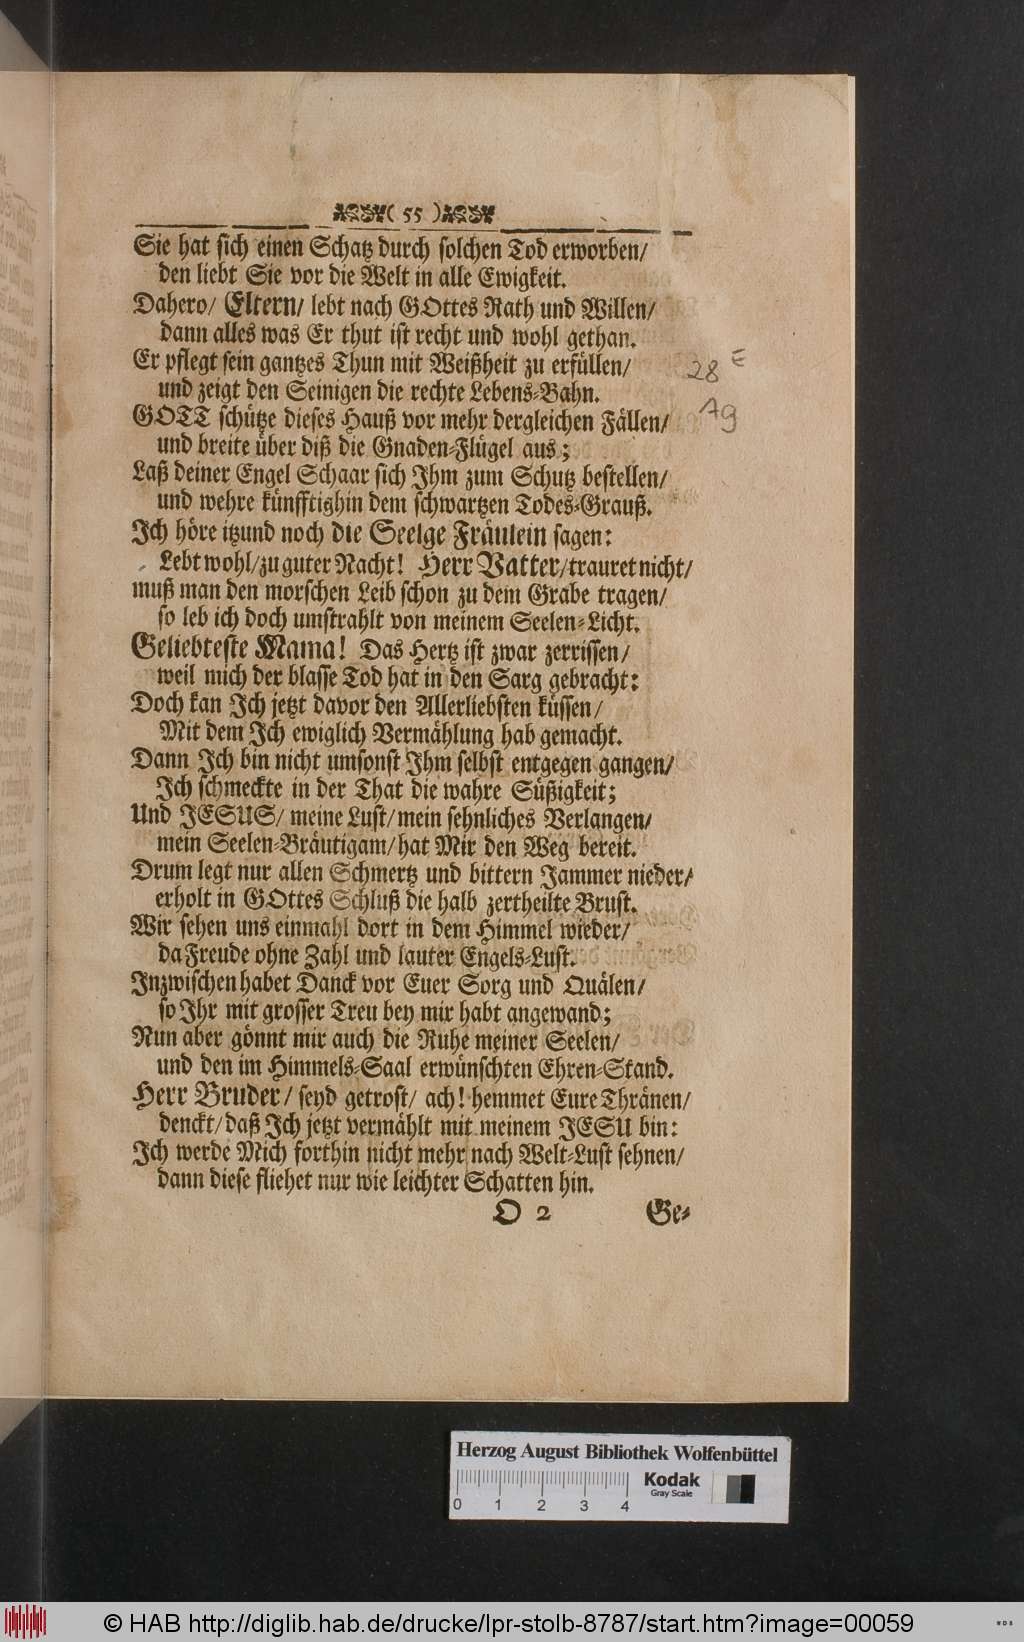 ( 55 )
Sie hat sich einen Schatz durch solchen Tod erworben/
den liebt Sie vor die Welt in alle Ewigkeit.
Dahero/ Eltern/ lebt nach GOttes Rath und Willen/
dann alles was Er thut ist recht und wohl gethan.
Er pflegt sein gantzes Thun mit Weißheit zu erfüllen/
und zeigt den Seinigen die rechte Lebens-Bahn.
GOTT schütze dieses Hauß vor mehr dergleichen Fällen/
und breite über diß die Gnaden-Flügel aus;
Laß deiner Engel Schaar sich Ihm zum Schutz bestellen/
und wehre künfftighin dem schwartzen Todes-Grauß.
Ich höre itzund noch die Seelge Fräulein sagen:
Lebt wohl/ zu guter Nacht! Herr Vatter/ trauret nicht/
muß man den morschen Leib schon zu dem Grabe tragen/
so leb ich doch umstrahlt von meinem Seelen-Licht.
Geliebteste Mama! Das Hertz ist zwar zerrissen/
weil mich der blasse Tod hat in den Sarg gebracht:
Doch kan Ich jetzt davor den Allerliebsten küssen/
Mit dem Ich ewiglich Vermählung hab gemacht.
Dann Ich bin nicht umsonst Ihm selbst entgegen gangen/
Ich schmeckte in der That die wahre Süßigkeit;
Und JESUS/ meine Lust/ mein sehnliches Verlangen/
mein Seelen-Bräutigam/ hat Mir den Weg bereit.
Drum legt nur allen Schmertz und bittern Jammer nieder/
erholt in GOttes Schluß die halb zertheilte Brust.
Wir sehen uns einmahl dort in dem Himmel wieder/
da Freude ohne Zahl und lauter Engels-Lust.
Inzwischen habet Danck vor Euer Sorg und Quälen/
so Ihr mit grosser Treu bey mir habt angewand;
Nun aber gönnt mir auch die Ruhe meiner Seelen/
und den im Himmels-Saal erwünschten Ehren-Stand.
Herr Bruder/ seyd getrost/ ach! hemmet Eure Thränen/
denckt/ daß Ich jetzt vermählt mit meinem JESU bin:
Ich werde Mich forthin nicht mehr nach Welt-Lust sehnen/
dann diese fliehet nur wie leichter Schatten hin.
O 2 Ge-
28 E
19
Herzog August Bibliothek Wolfenbüttel
Kodak
Gray Scale
0 1 2 3 4
© HAB http://diglib.hab.de/drucke/lpr-stolb-8787/start.htm?image=00059